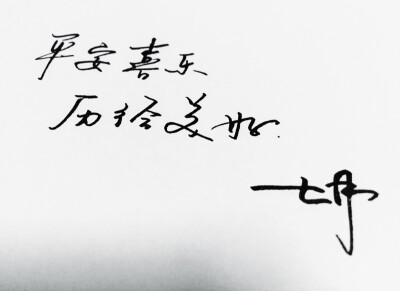 平安喜乐
历经美好.
七